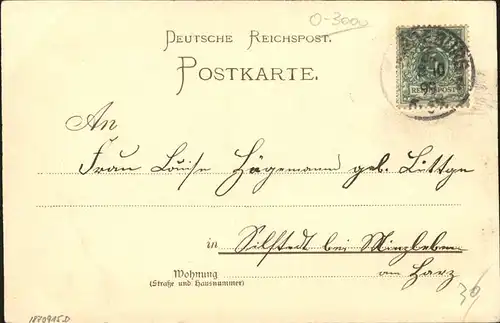 0-3000
DEUTSCHE REICHSPOST.
POSTKARTE.
REICHSPOST
An
Frau Louise Hägemann geb. Lüttge
in Silstedt bei Minsleben
am Harz
Wohnung
(Straße und Hausnummer)
1870915.D